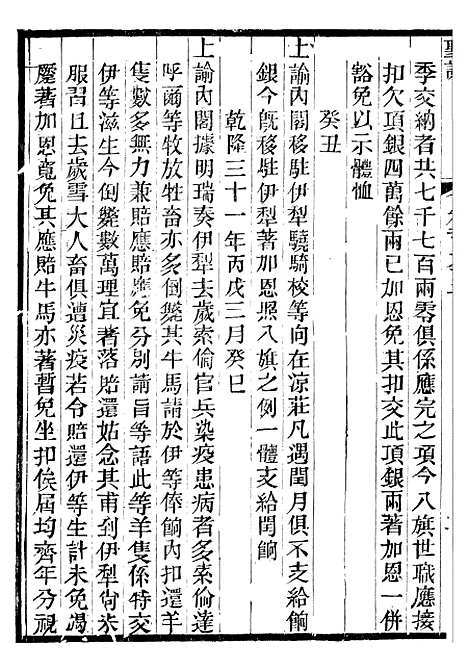 聖訓
季交納者共七千七百兩零俱係應完之項今八旗世職應接
扣欠項銀四萬餘兩已加恩免其扣交此項銀兩著加恩一併
豁免以示體恤
癸丑
上諭內閣移駐伊犁驍騎校等向在涼莊凡遇閏月俱不支給餉
銀今旣移駐伊犁著加恩照八旗之例一體支給閏餉
乾隆三十一年丙戌三月癸巳
上諭內閣據明瑞奏伊犁去歲索倫官兵染疫患病者多索倫達
呼爾等牧放牲畜亦多倒斃其牛馬請於伊等俸餉內扣還羊
隻數多無力兼賠應賠應免分別請旨等語此等羊隻係特交
伊等滋生今倒斃數萬理宜著落賠還姑念其甫到伊犁尙未
服習且去歲雪大人畜俱遭災疫若令賠還伊等生計未免竭
蹷著加恩竟免其應賠牛馬亦著暫免坐扣俟屆均齊年分視